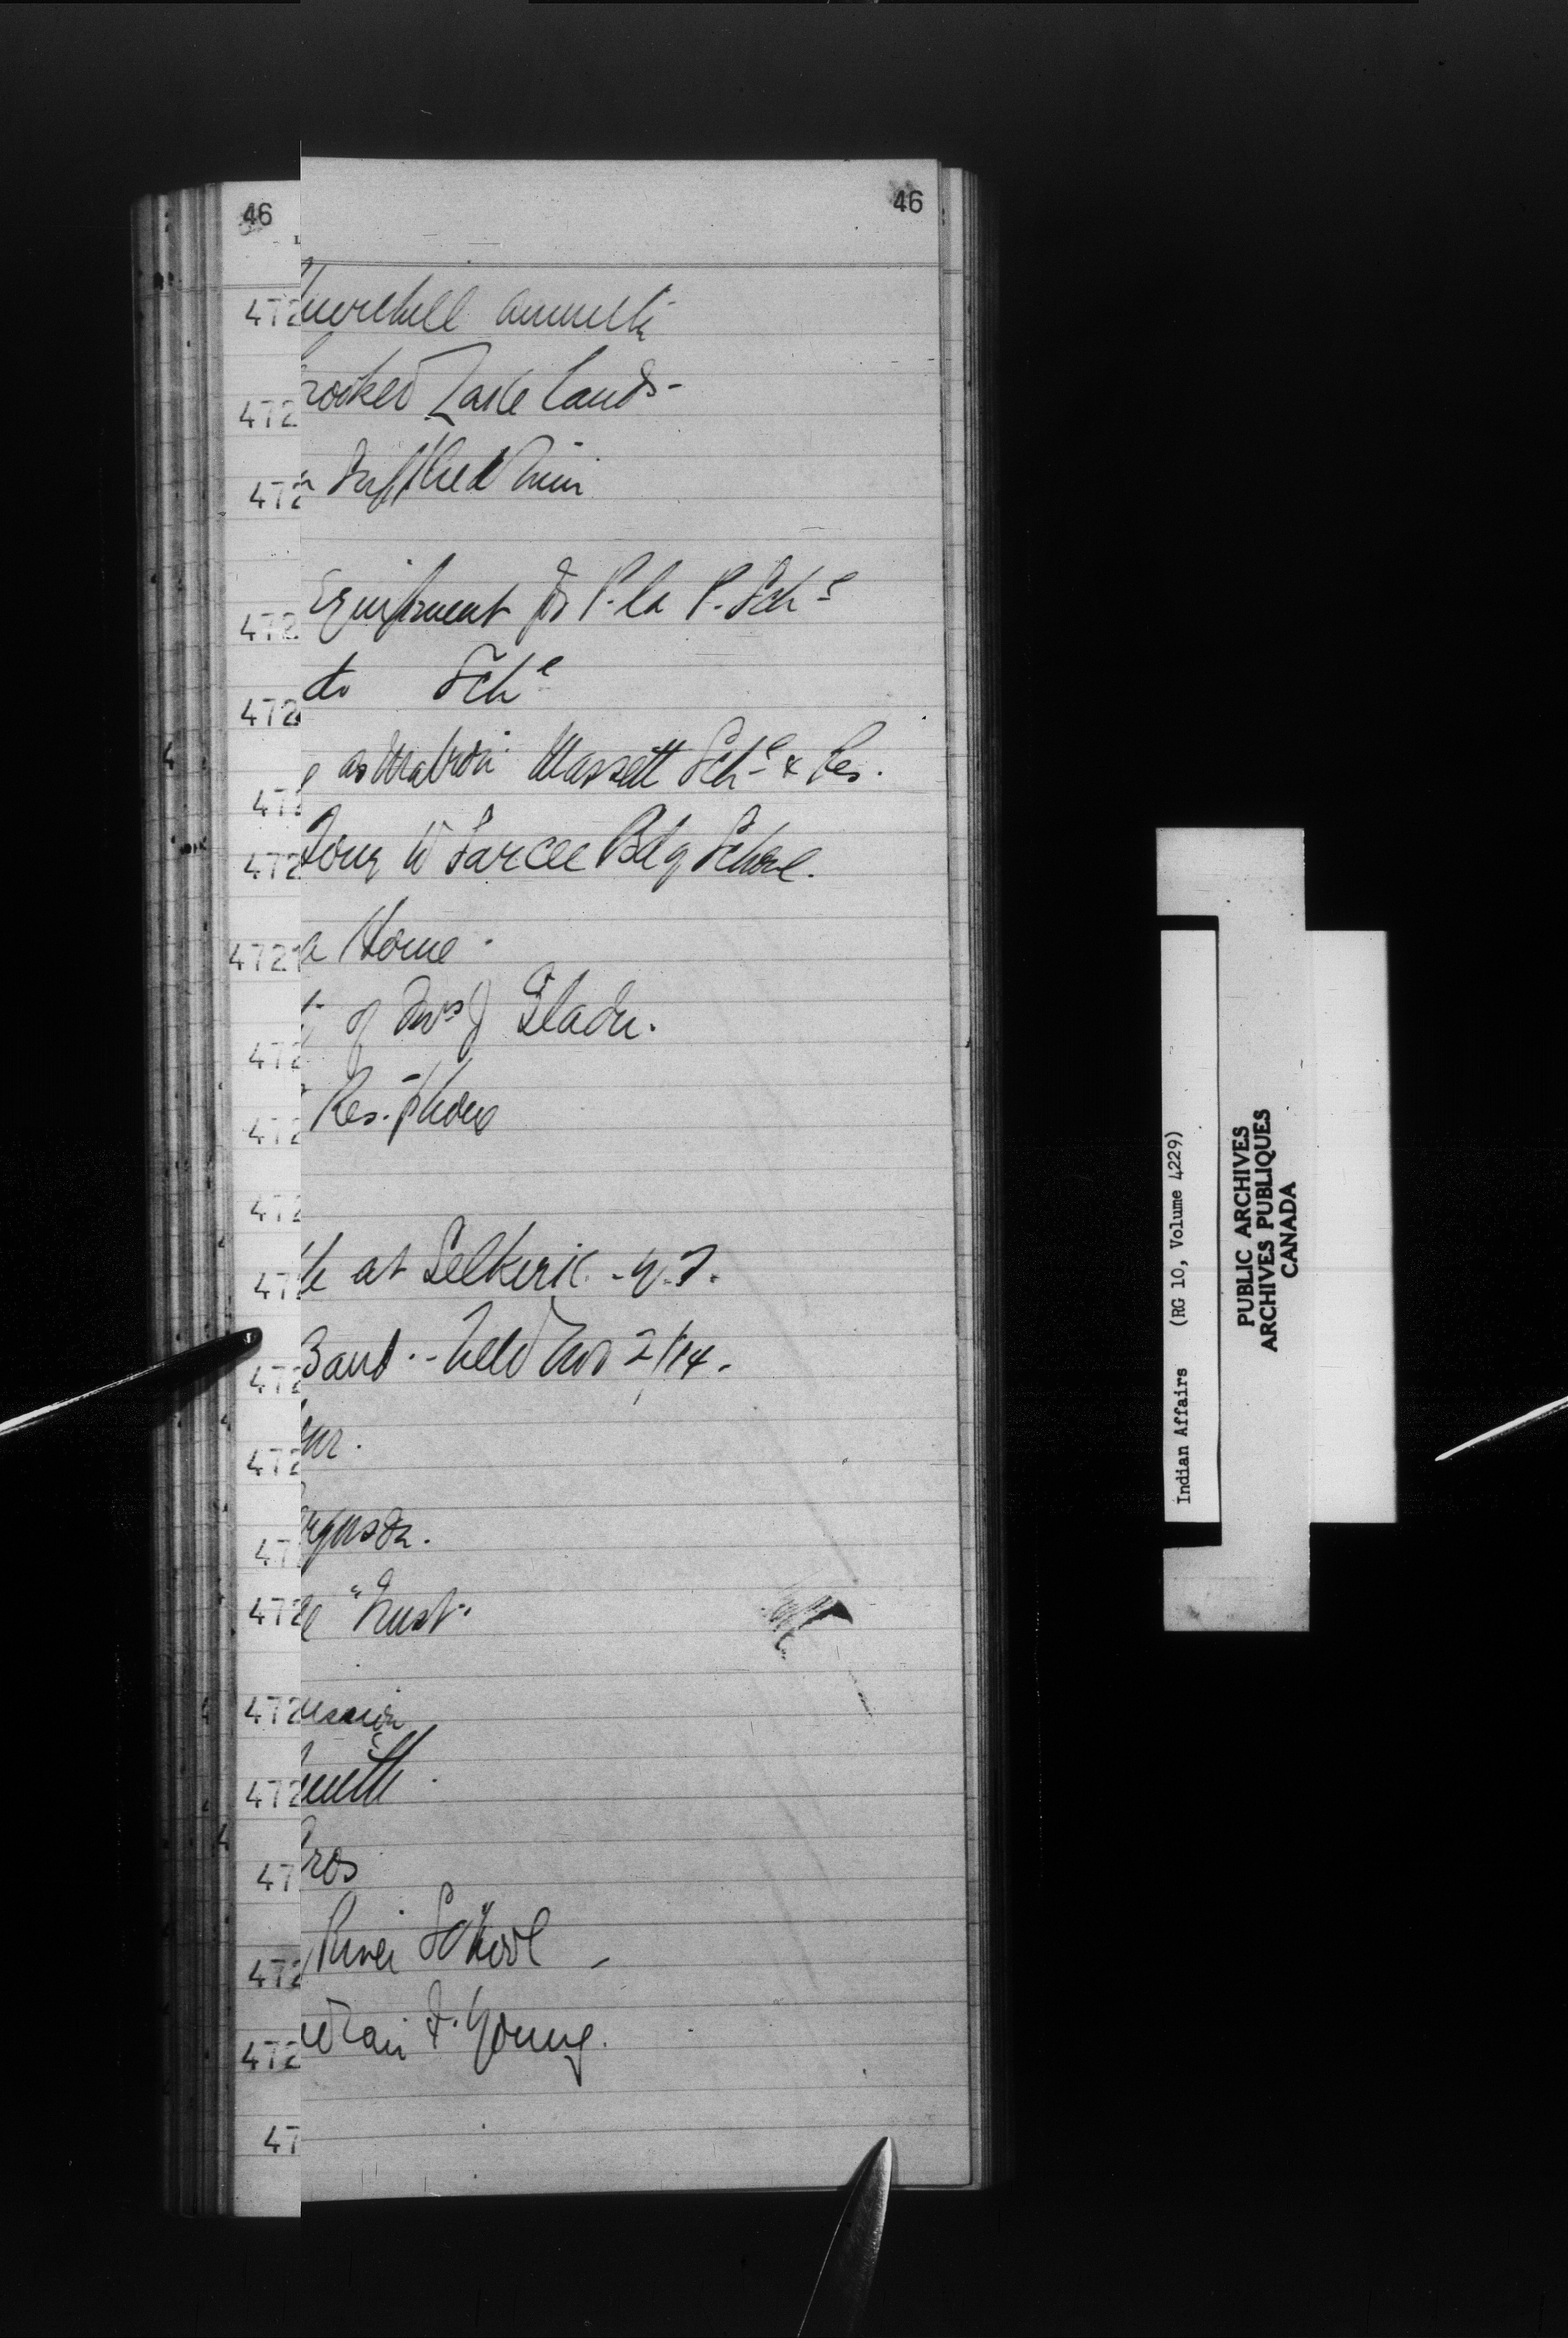 46 46
472 hurchill annuity
472 rooked Lake Lands -
472
472 Equipment for P. la P. Schl
472 do Schl
47 as Matron Massett Schl & Res.
472 Tour to Sarcee Bdg School.
472 a Home -
472 of Mrs J Gladu.
472 Res. phone
472
47 at Selkirk - Y.T.
472 Band - held Nov 2/14.
472
47 erguson.
472 "Trust"
472 ission
472 mith.
47 ros
472 River School -
472 F. Young.
47
Indian Affairs (RG 10, Volume 4229)
PUBLIC ARCHIVES
ARCHIVES PUBLIQUES
CANADA